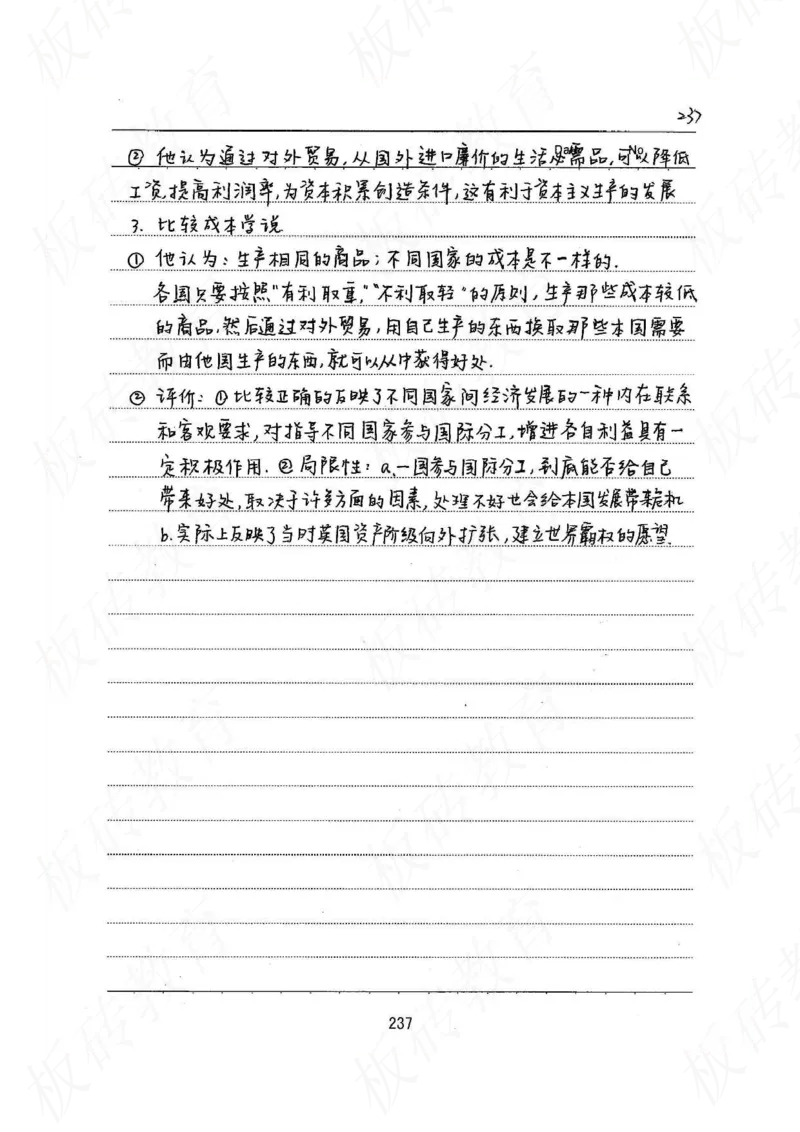 237
② 他认为通过对外贸易,从国外进口廉价的生活必需品,可以降低
工资,提高利润率,为资本积累创造条件,这有利于资本主义生产的发展
3. 比较成本学说
① 他认为:生产相同的商品;不同国家的成本是不一样的.
各国只要按照"有利取重,""不利取轻"的原则,生产那些成本较低
的商品,然后通过对外贸易,用自己生产的东西换取那些本国需要
而由他国生产的东西,就可以从中获得好处.
② 评价:①比较正确的反映了不同国家间经济发展的一种内在联系
和客观要求,对指导不同国家参与国际分工,增进各自利益具有一
定积极作用.②局限性:a.一国参与国际分工,到底能否给自己
带来好处,取决于许多方面的因素,处理不好也会给本国发展带来危机
b.实际上反映了当时英国资产阶级向外扩张,建立世界霸权的愿望.
237
板砖教育